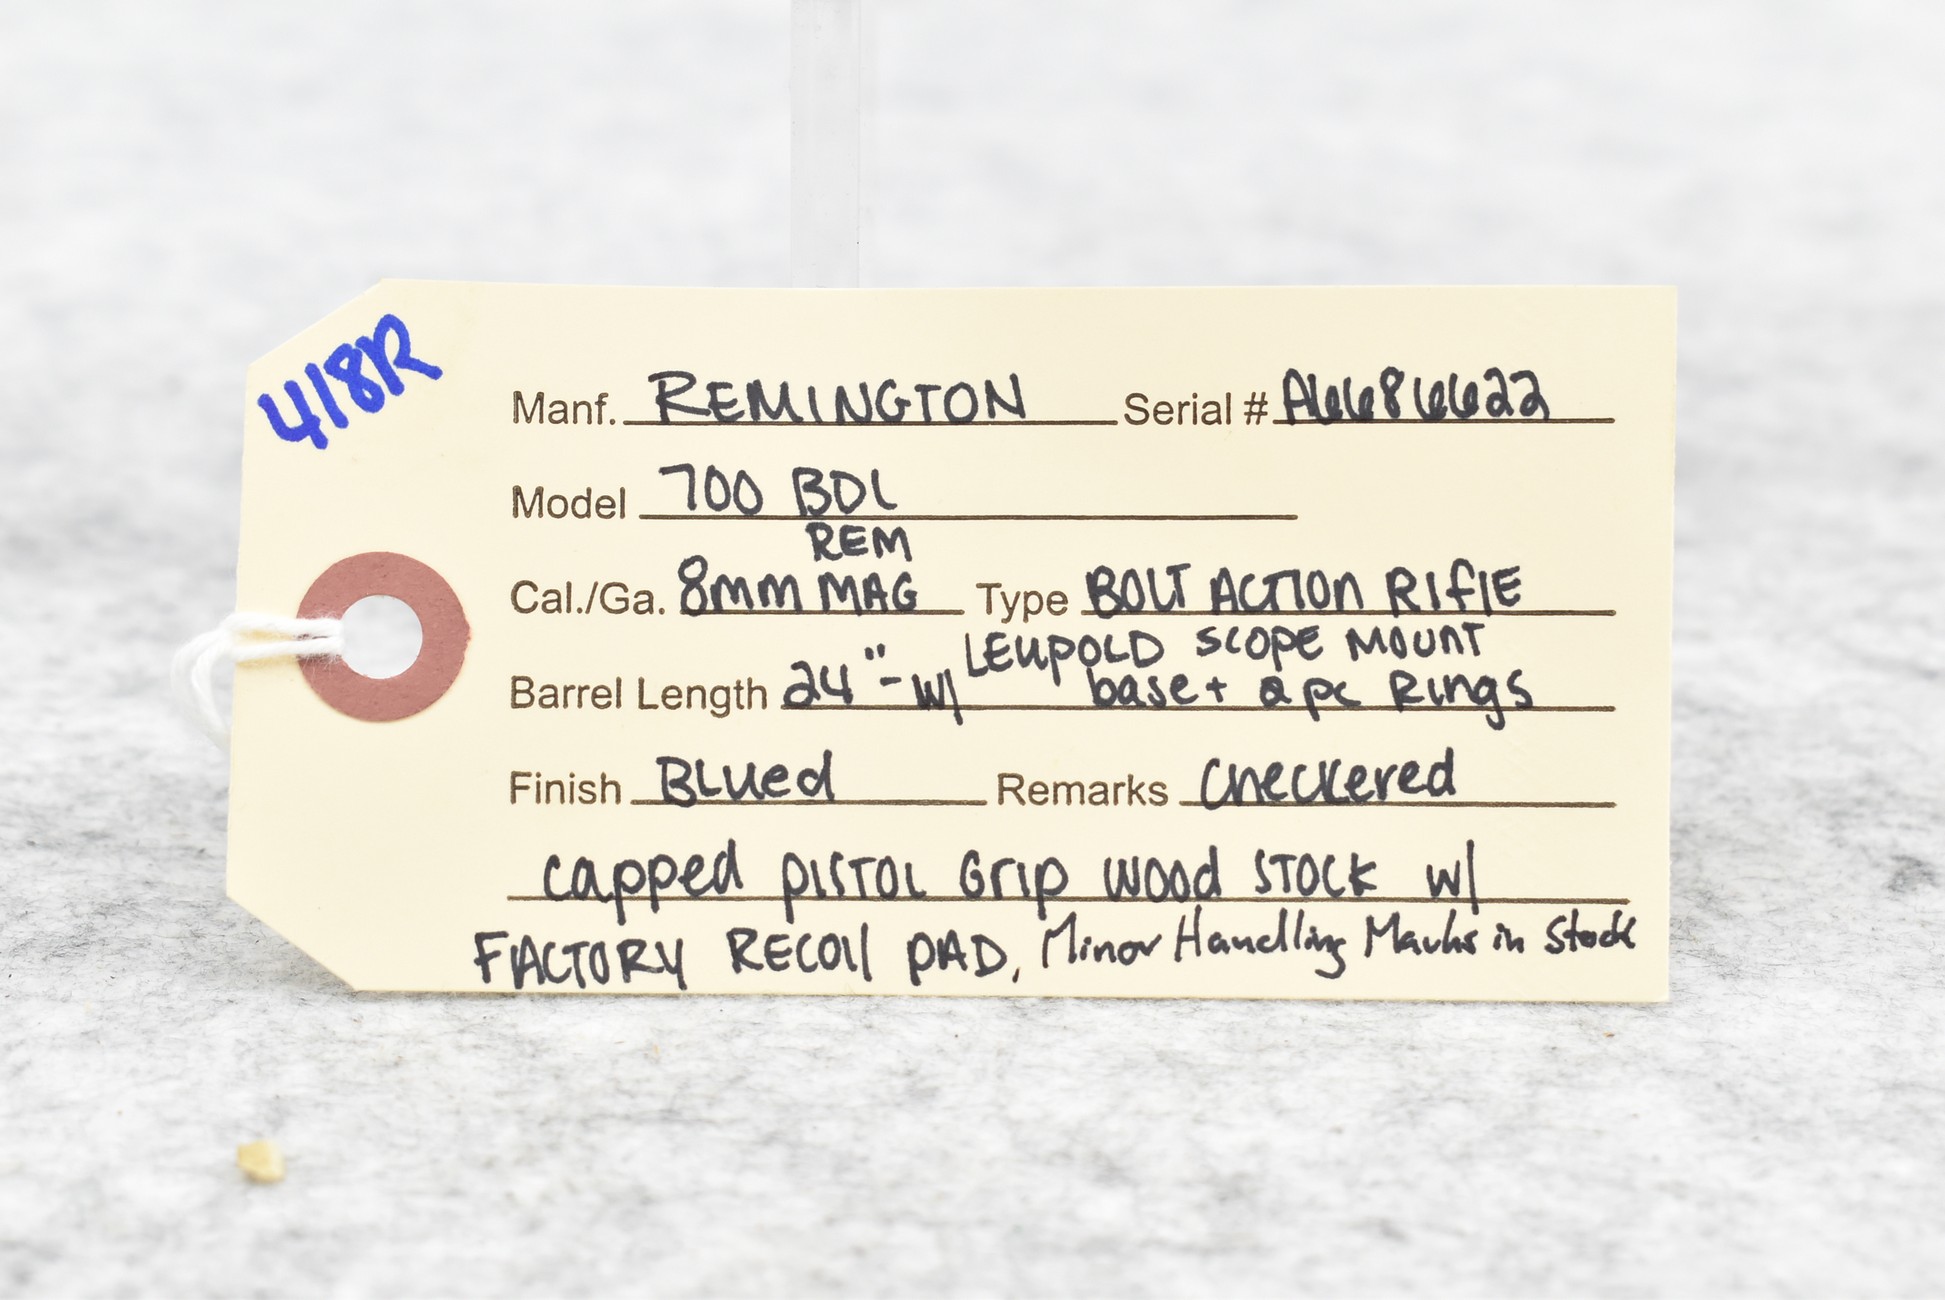 418R
Manf. REMINGTON Serial # A6686622
Model 700 BDL
REM
Cal./Ga. 8mm MAG Type BOLT ACTION RIFIE
LEUPOLD SCOPE MOUNT
Barrel Length 24" - w/ base + 2 pc Rings
Finish BLued Remarks checkered
capped PISTOL Grip wood STOCK w/
FACTORY RECOIl PAD, Minor Handling Marks in Stock